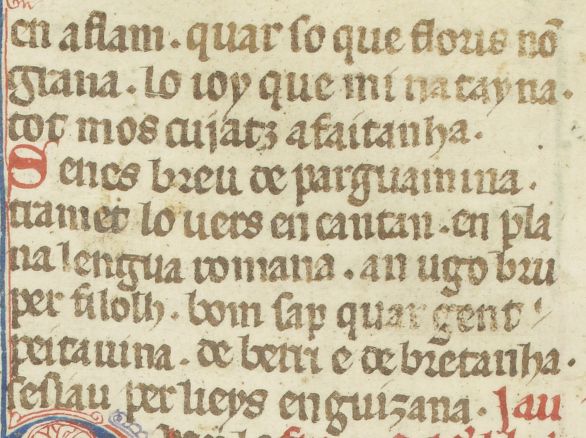 en aflam. quar so que floris nõ
grana. lo ioy que mi na tayna.
tot mos cujatz afaitanha.
Senes breu de parguamina.
tramet lo uers en cantan. en pla
na lengua romana. an ugo bru
per filolh. bom sap quar gent
peitauina. de berri e de bretanha.
sesiau per ueys en guizana. Jau